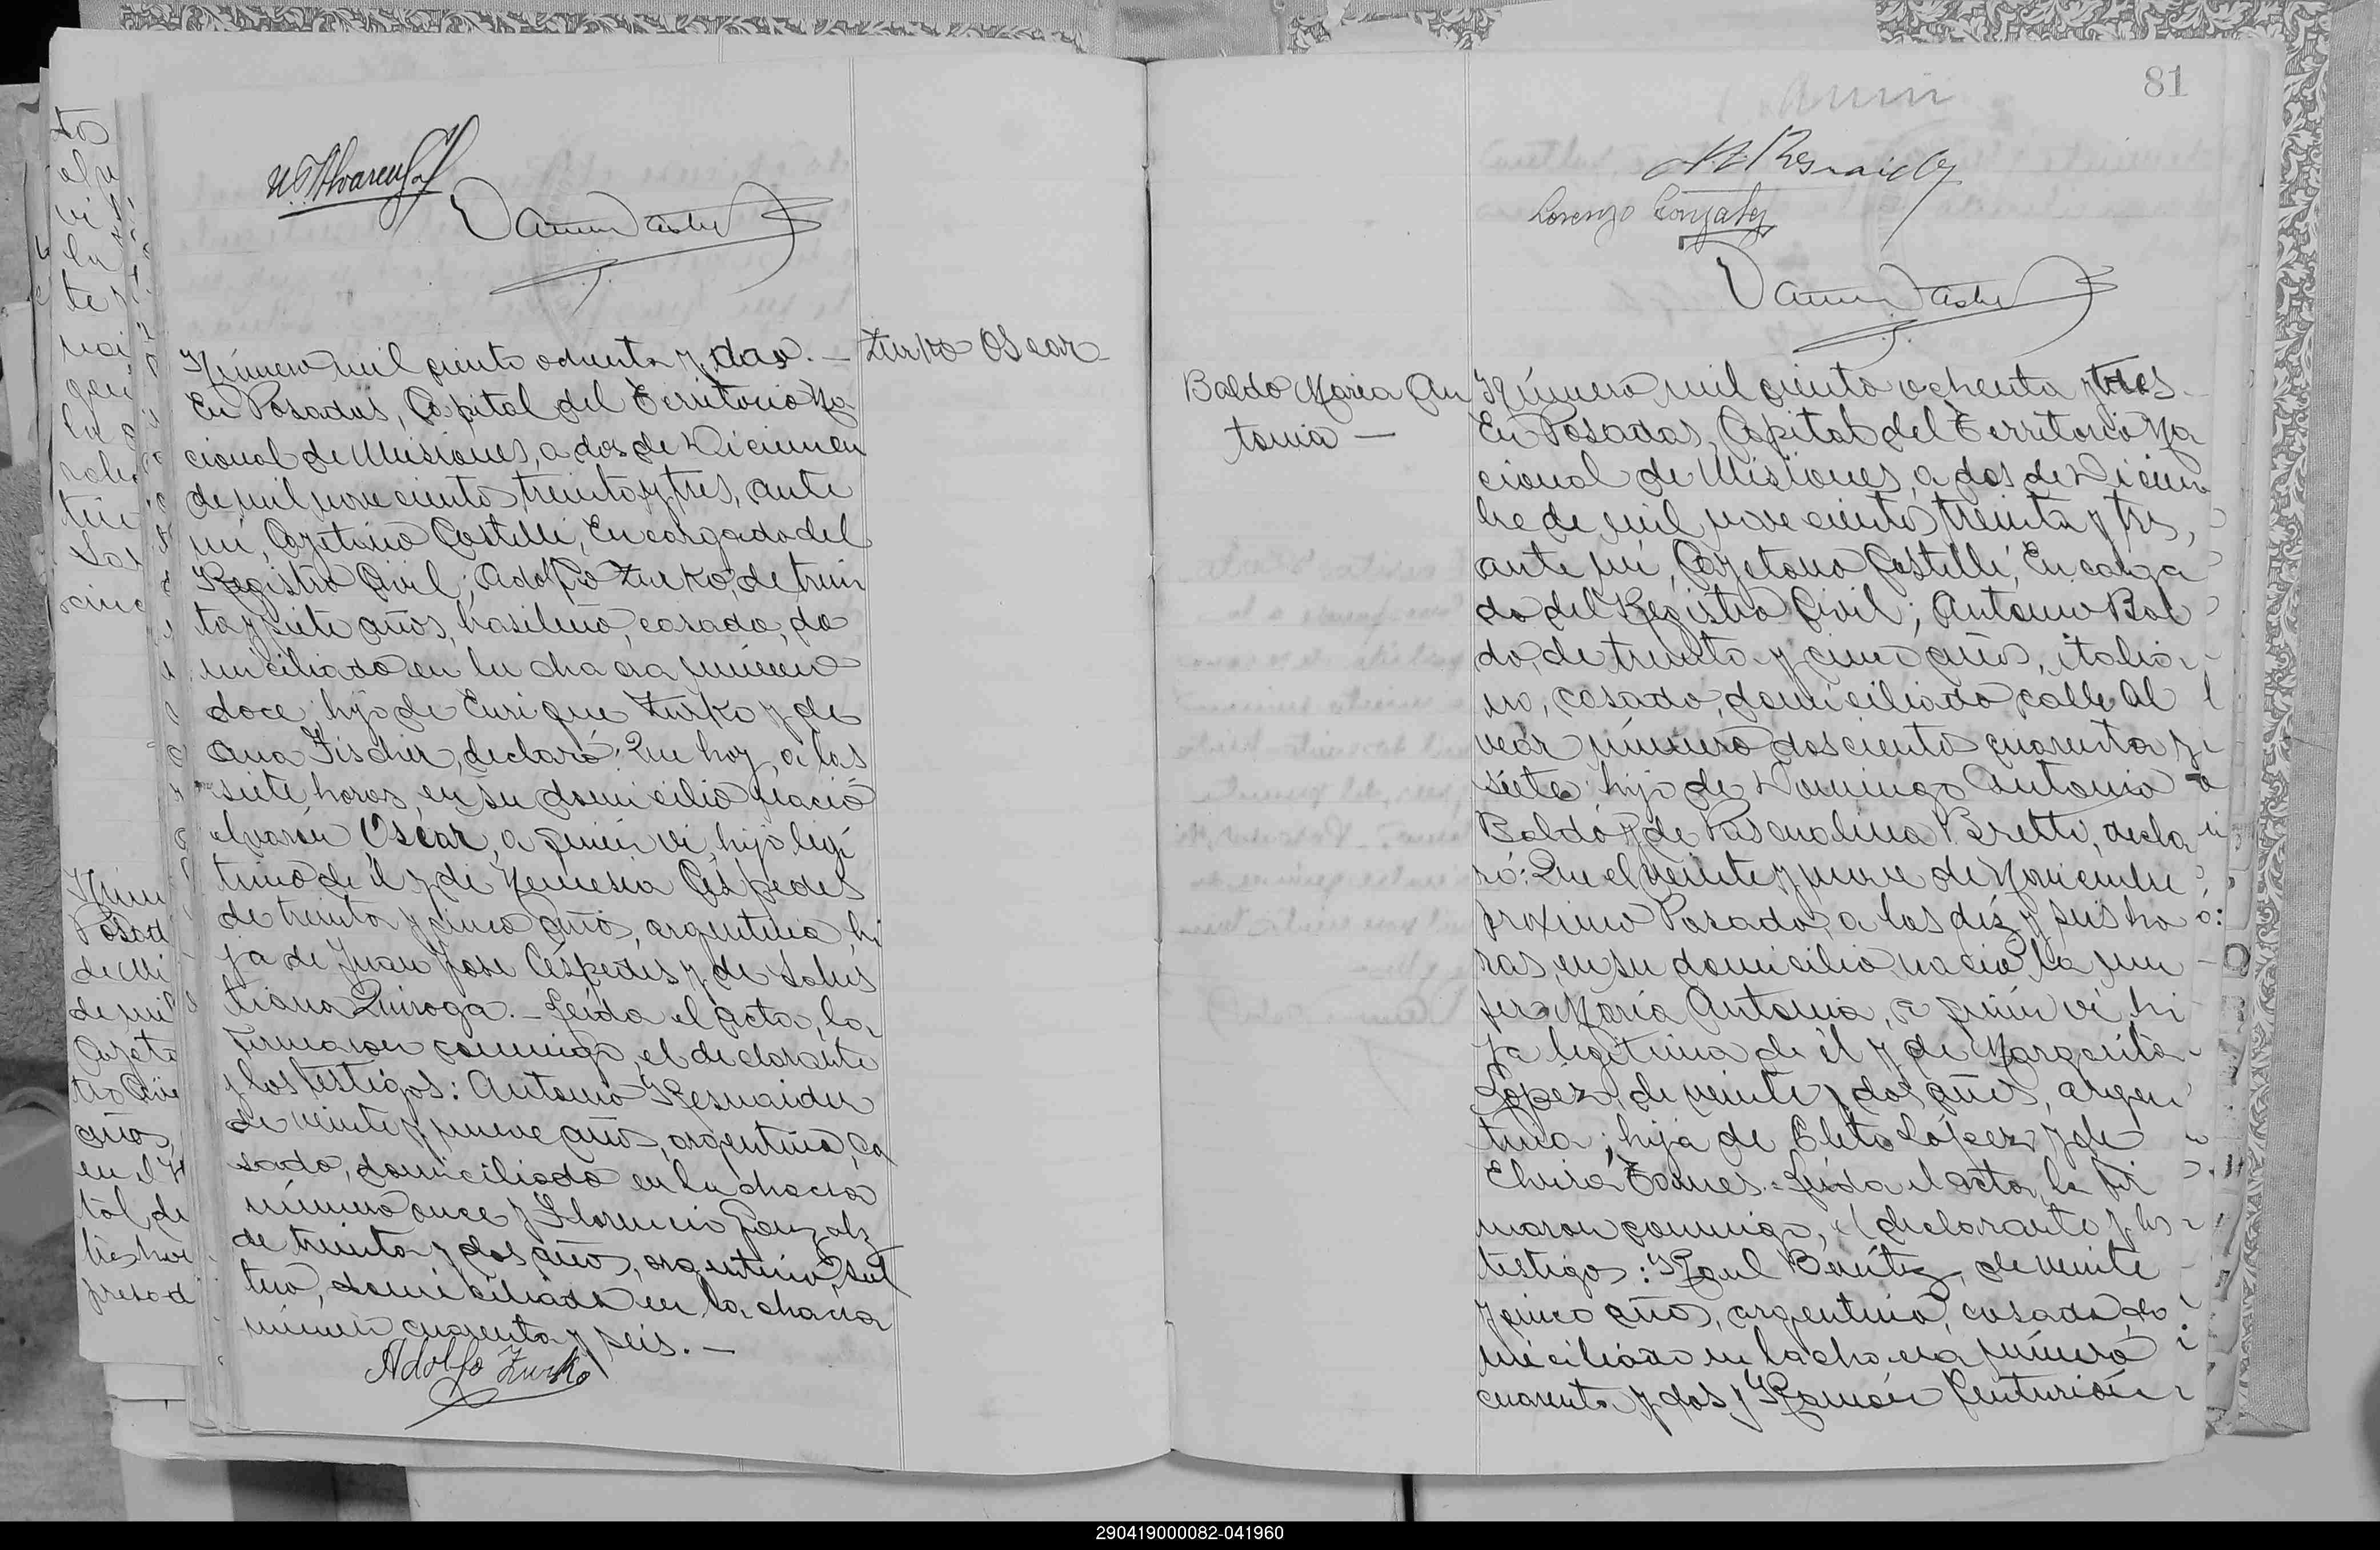 Zurko Oscar
Número mil ciento ochenta y dos. —
En Posadas, Capital del Territorio Na
cional de Misiones, a dos de Diciembre
de mil novecientos treinta y tres, ante
mi, Cayetano Castelli, Encargado del
Registro Civil; Adolfo Zurko, de trein
ta y siete años, brasileño, casado, do
miciliado en la chacra número
doce, hijo de Enrique Zurko y de
Ana Fischer, declaró: Que hoy, a las
siete horas, en su domicilio nació
el varón Oscar, a quien vi, hijo legi
timo de él y de Nemesia Céspedes
de treinta y cinco años, argentina, hi
ja de Juan José Céspedes y de Salus
tiana Quiroga. — Leída el acta, la
firmaron conmigo, el declarante
y los testigos: Antonio Resnaider
de veinte y nueve años, argentino, ca
sado, domiciliado en la chacra
número once y Florencio Gonzalz
de treinta y dos años, argentino, sol
tero, domiciliado en la chacra
número cuarenta y seis. —
Adolfo Zurko
81
Lorenzo Gonzalez
Baldo Maria An
tonia —
Número mil ciento ochenta y tres.
En Posadas, Capital del Territorio Na
cional de Misiones, a dos de Diciem
bre de mil novecientos treinta y tres,
ante mi, Cayetano Castelli, Encarga
do del Registro Civil; Antonio Bal
do, de treinta y cinco años, italia
no, casado, domiciliado calle Al
vear número doscientos cuarenta y
siete, hijo de Domingo Antonio
Baldo y de Pascualina Bretti, decla
ró: Que el veinte y nueve de Noviembre
proximo Pasado, a las diéz y seis ho
ras, en su domicilio nació la mu
jer María Antonia, a quien vi, hi
ja legitima de él y de Margarita
López, de veinte y dos años, argen
tina; hija de Cleto López y de
Elvira Torres. Leída el acta, la fir
maron conmigo, el declarante y los
testigos: Raul Benítez, de veinte
y cinco años, argentino, casado, do
miciliado en la chacra número
cuarenta y dos y Ramón Centurión
290419000082-041960